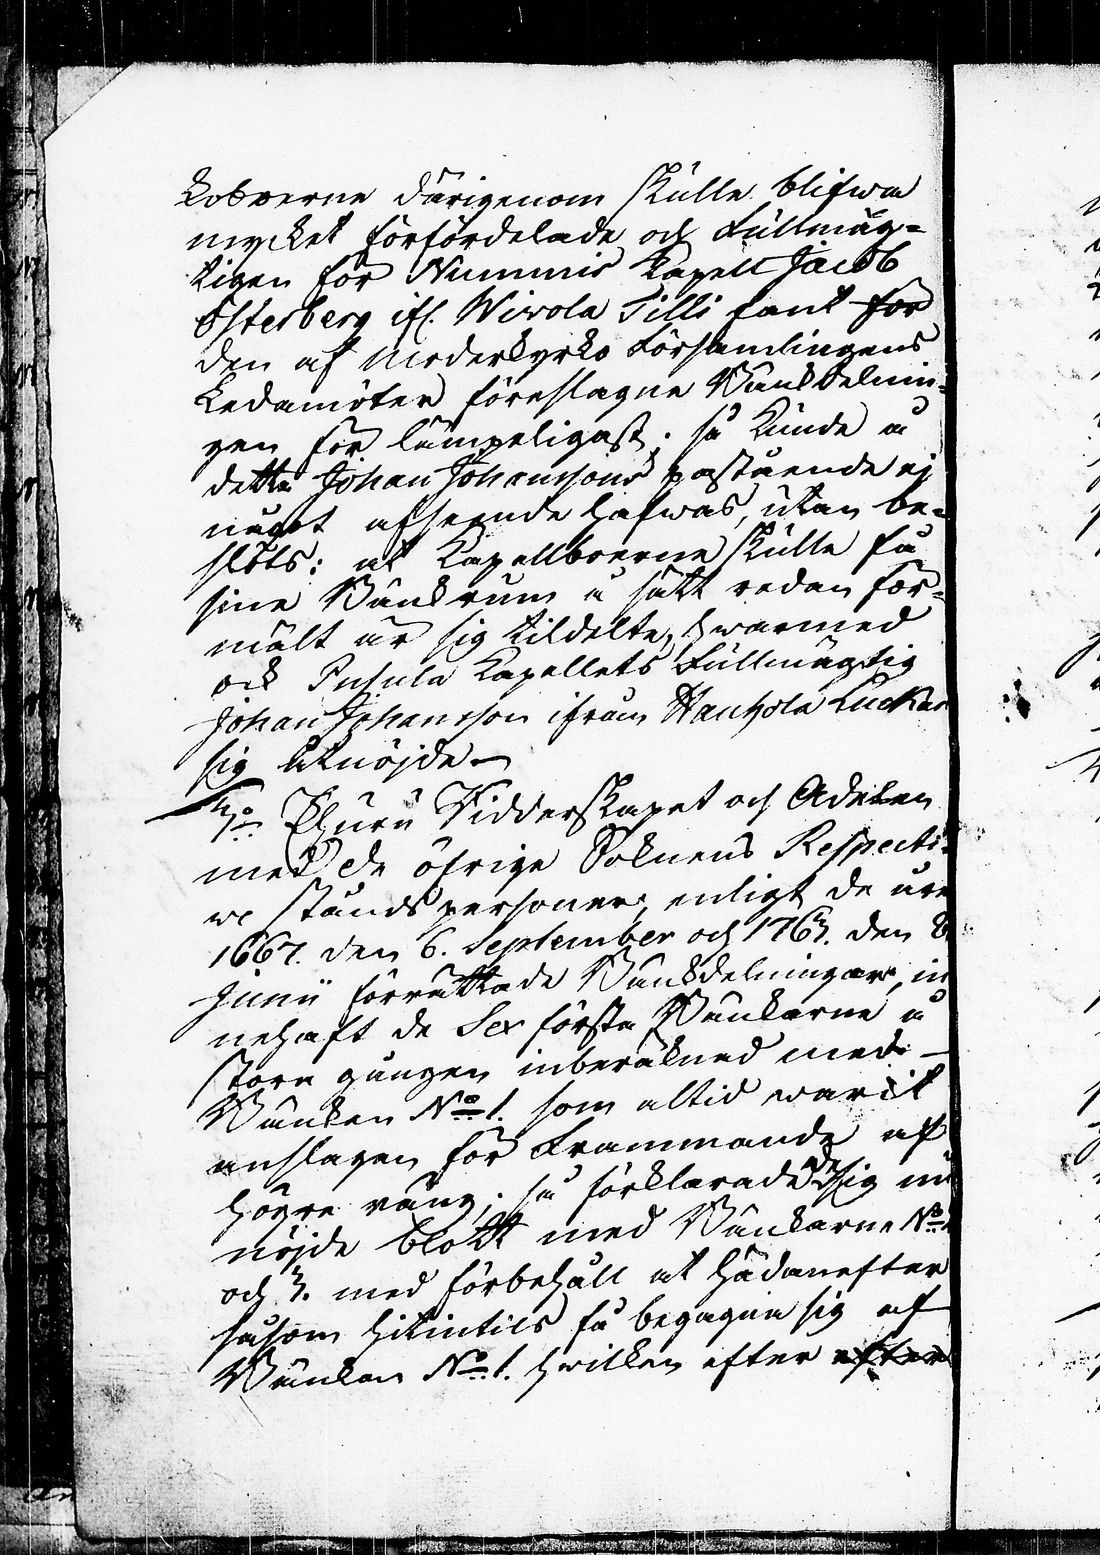 boerne därigenom skulle blifwa
mycket förfördelade och Fullmäg-
tigen för Nummis Kapell Jacob
Österberg ifr. Wirola Tilli fant för
den af Moderkyrko Församlingens
Ledamöter föreslagne Bänkdelnin-
gen för lämpeligast; så kunde å
detta Johan Johanssons påstående ej
något afseende hafwas, utan be-
slöts: at Kapellboerne skulle få
sine Bänkrum å sätt redan för-
mält är sig tildelte, hwarmed
ock Pusula Kapellets Fullmägtig
Johan Johansson ifrån Hauhola Luckas
sig åtnöjde.
Ehuru Ridderskapet och Adelen
med de öfrige Soknens Respecti-
ve Ståndspersoner, enligt de åren
1667. den 6. September och 1763. den 8
Junii förrättade Bänkdelningar, in
nehaft de Sex första Bänkarne å
stora gången inberäknad med
Bänken No. 1. som altid warit
anslagen för Frammande af
högre rang; så förklarade de sig nu
nöjde blott med Bänkarne No.
och 3. med förbehåll at hädanefter
såsom hitintils få begagna sig af
Bänken No. 1. hwilken efter